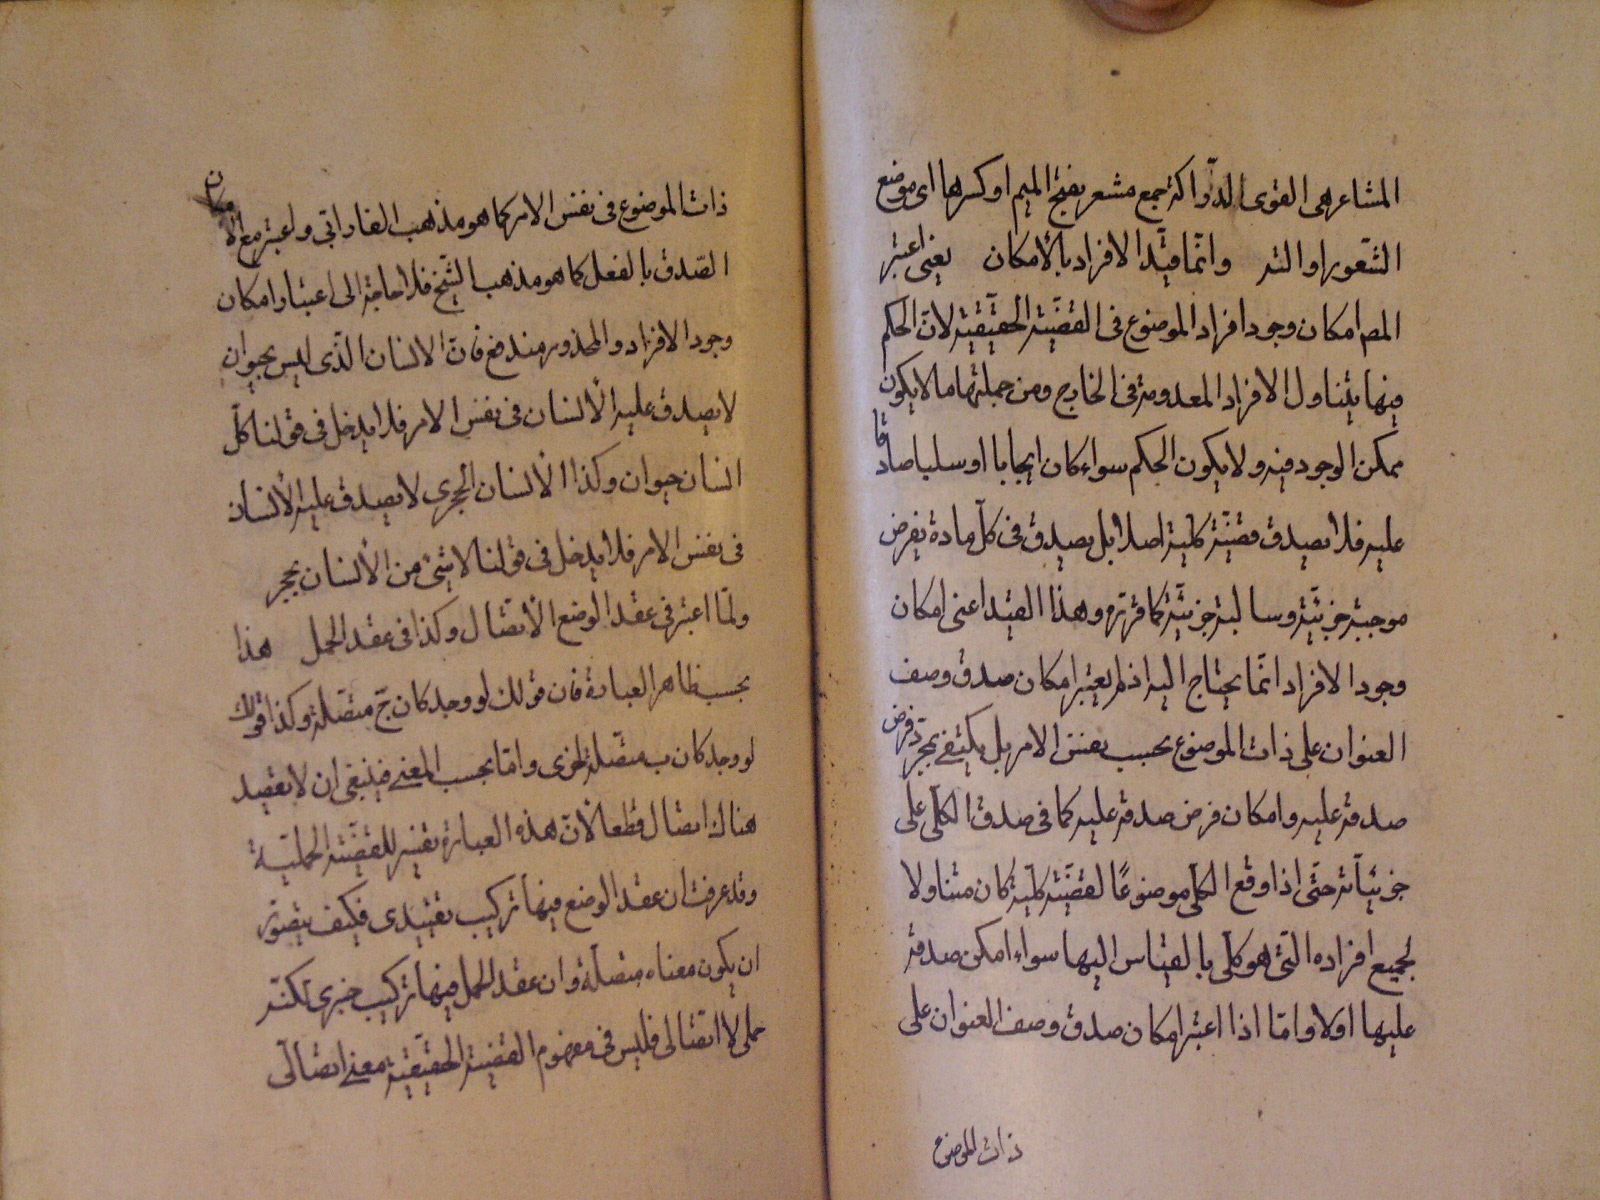 المشاعر هى القوى الدرّاكة جمع مشعر بفتح الميم او كسرها اى موضع
الشعور او التر وانّما قيّد الافراد بالامكان يعنى اعتبر
المص امكان وجود افراد الموضوع فى القضيّة الحقيقية لانّ الحكم
فيها يتناول الافراد المعدومة فى الخارج ومن جملتها ما لا يكون
ممكن الوجود فيه ولا يكون الحكم سواء كان ايجابا او سلبا صادقا
عليه فلا يصدق قضيّة كلية اصلا بل يصدق فى كلّ مادة يفرض
موجبة جزئيّة وسالبة جزئيّة كما قرّره وهذا القيد اعنى امكان
وجود الافراد انّما يحتاج اليه اذ لم يعتبر امكان صدق وصف
العنوان على ذات الموضوع بحسب نفس الامر بل يكتفى بمجرّد فرض
صدقه عليه وامكان فرض صدقه عليه كما فى صدق الكلّى على
جزئيّاته حتّى اذا وقع الكلّى موضوعًا لقضيّة كليّة كان متناولا
لجميع افراده التّى هو كلّى بالقياس اليها سواء امكن صدقه
عليها اولا وامّا اذا اعتبر امكان صدق وصف العنوان على
ذات الموضوع
ذات الموضوع فى نفس الامر كما هو مذهب الفارابى واعتبر مع الامكان
الصّدق بالفعل كما هو مذهب الشّيخ فلا حاجة الى اعتبار امكان
وجود الافراد والمحذور مندفع فانّ الانسان الّذى ليس بحيوان
لا يصدق عليه الأنسان فى نفس الامر فلا يدخل فى قولنا كلّ
انسان حيوان وكذا الأنسان الحجرى لا يصدق عليه الأنسان
فى نفس الامر فلا يدخل فى قولنا لا شئ من الأنسان بحجر
ولمّا اعتبر فى عقد الوضع الأتّصال وكذا فى عقد الحمل هذا
بحسب ظاهر العبارة فان قولك لو وجد كان ج متّصلة وكذا قولك
لو وجد كان ب متّصلة اخرى وامّا بحسب المعنى فينبغى ان لا يقصد
هناك اتصال قطعا لأنّ هذه العبارة تفسير للقضيّة الحمليّة
وقد عرفت ان عقد الوضع فيها تركيب تقييدى فكيف يتصوّر
ان يكون معناه متصلة وان عقد الحمل فيها تركيب خبرى لكنّه
حملى لا اتّصالى فليس فى مفهوم القضية الحقيّقية معنى اتصالّى